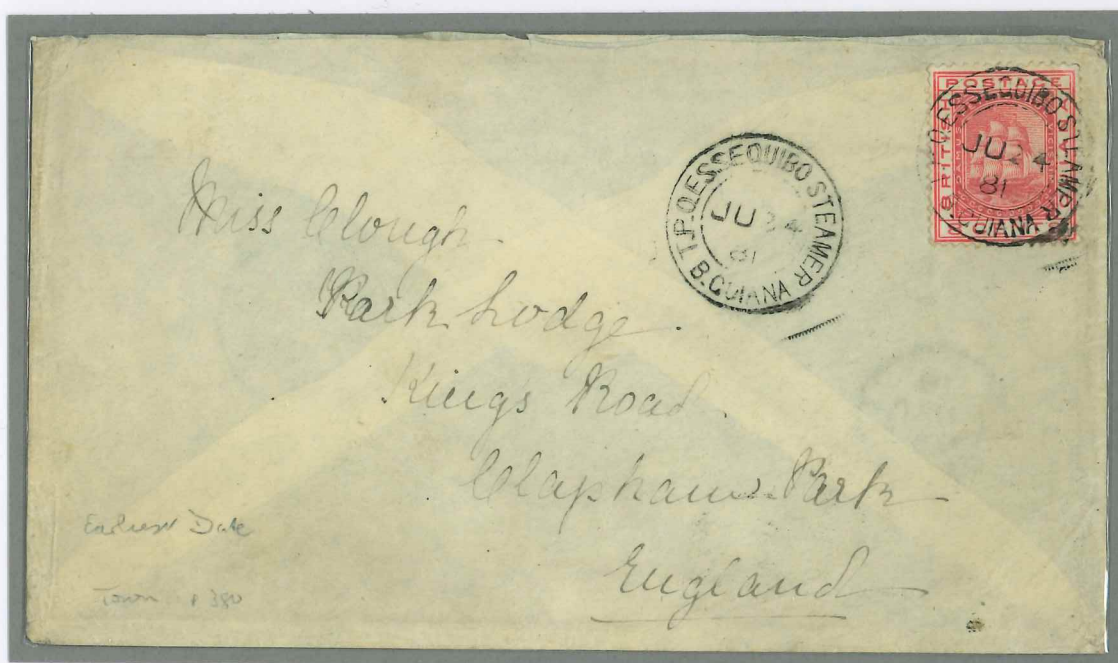 POSTAGE
BRITISH
T.P.O. ESSEQUIBO STEAMER
JU 24
81
B. GUIANA
T.P.O. ESSEQUIBO STEAMER
JU 24
81
B. GUIANA
Miss Clough
Park Lodge.
Kings Road.
Clapham Park
England
Earliest Date
Town p 380